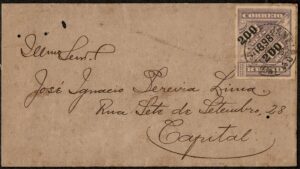 Illmo
Senr.
José Ignacio Pereira Lima
Rua Sete de Setembro, 28
Capital
200
1898
200